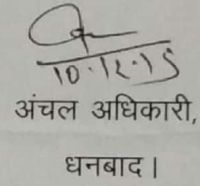 10.12.15
अंचल अधिकारी,
धनबाद।